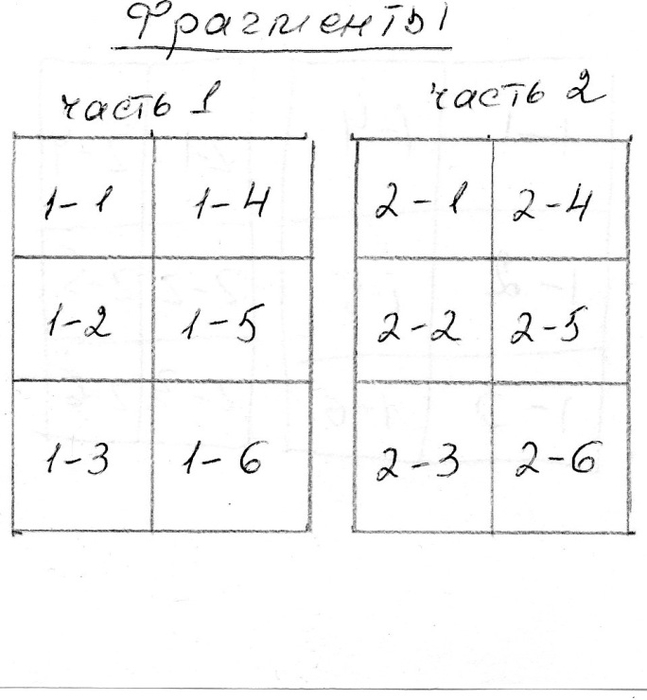 Фрагменты
часть 1
часть 2
1-1 1-4
2-1 2-4
1-2 1-5
2-2 2-5
1-3 1-6
2-3 2-6